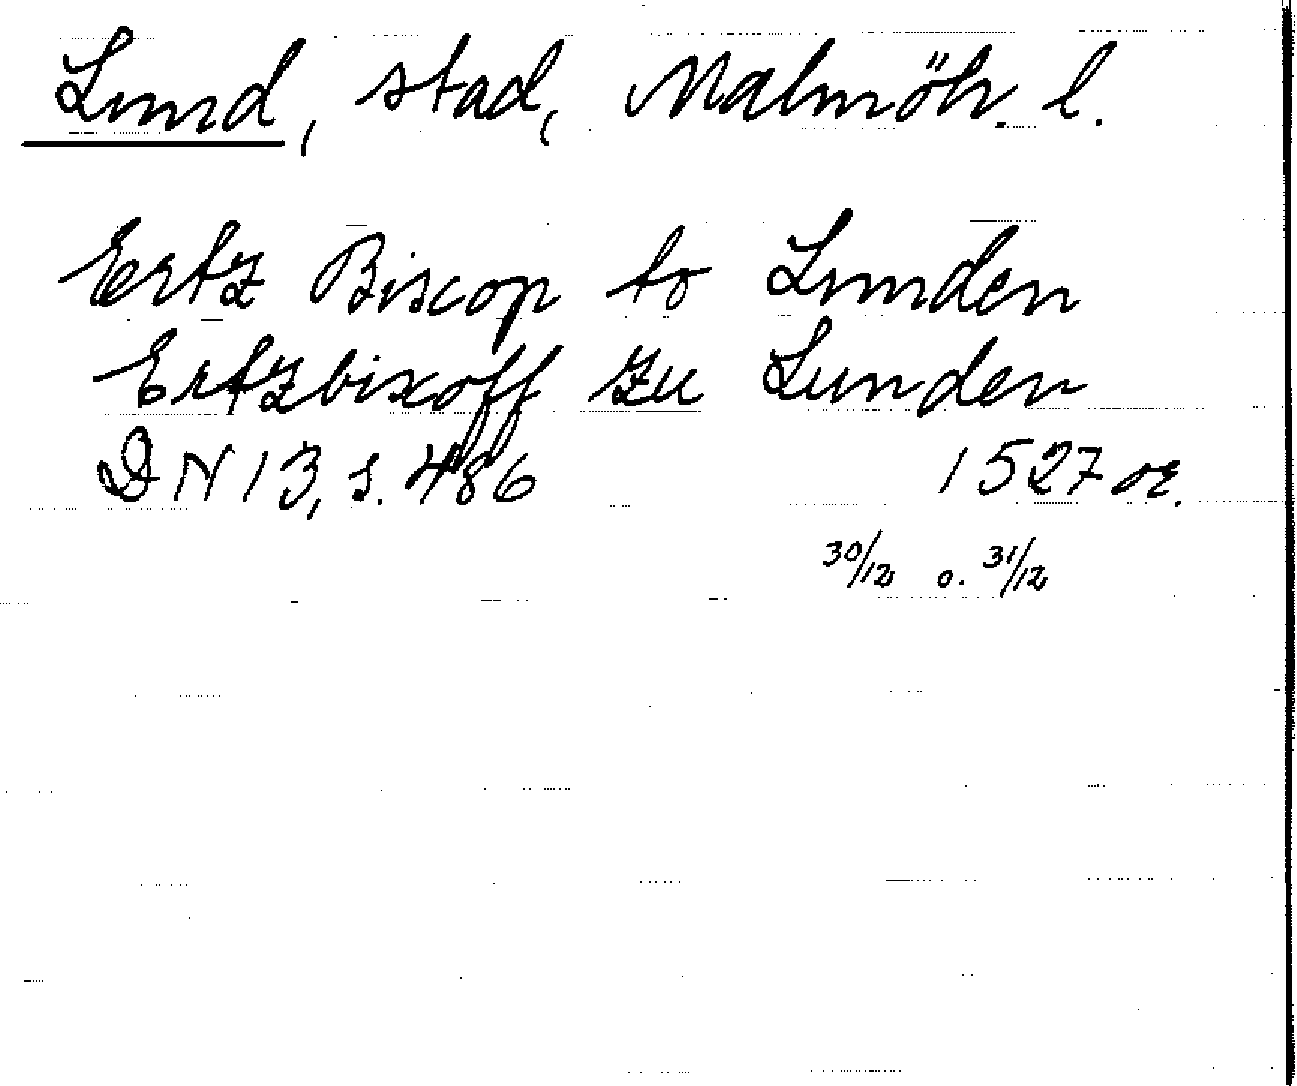 Lund, stad, Malmöh. l.
Ertz Biscop to Lunden
Ertzbixoff zu Lunden
DN 13, s. 486 1527 or.
30/12 o. 31/12